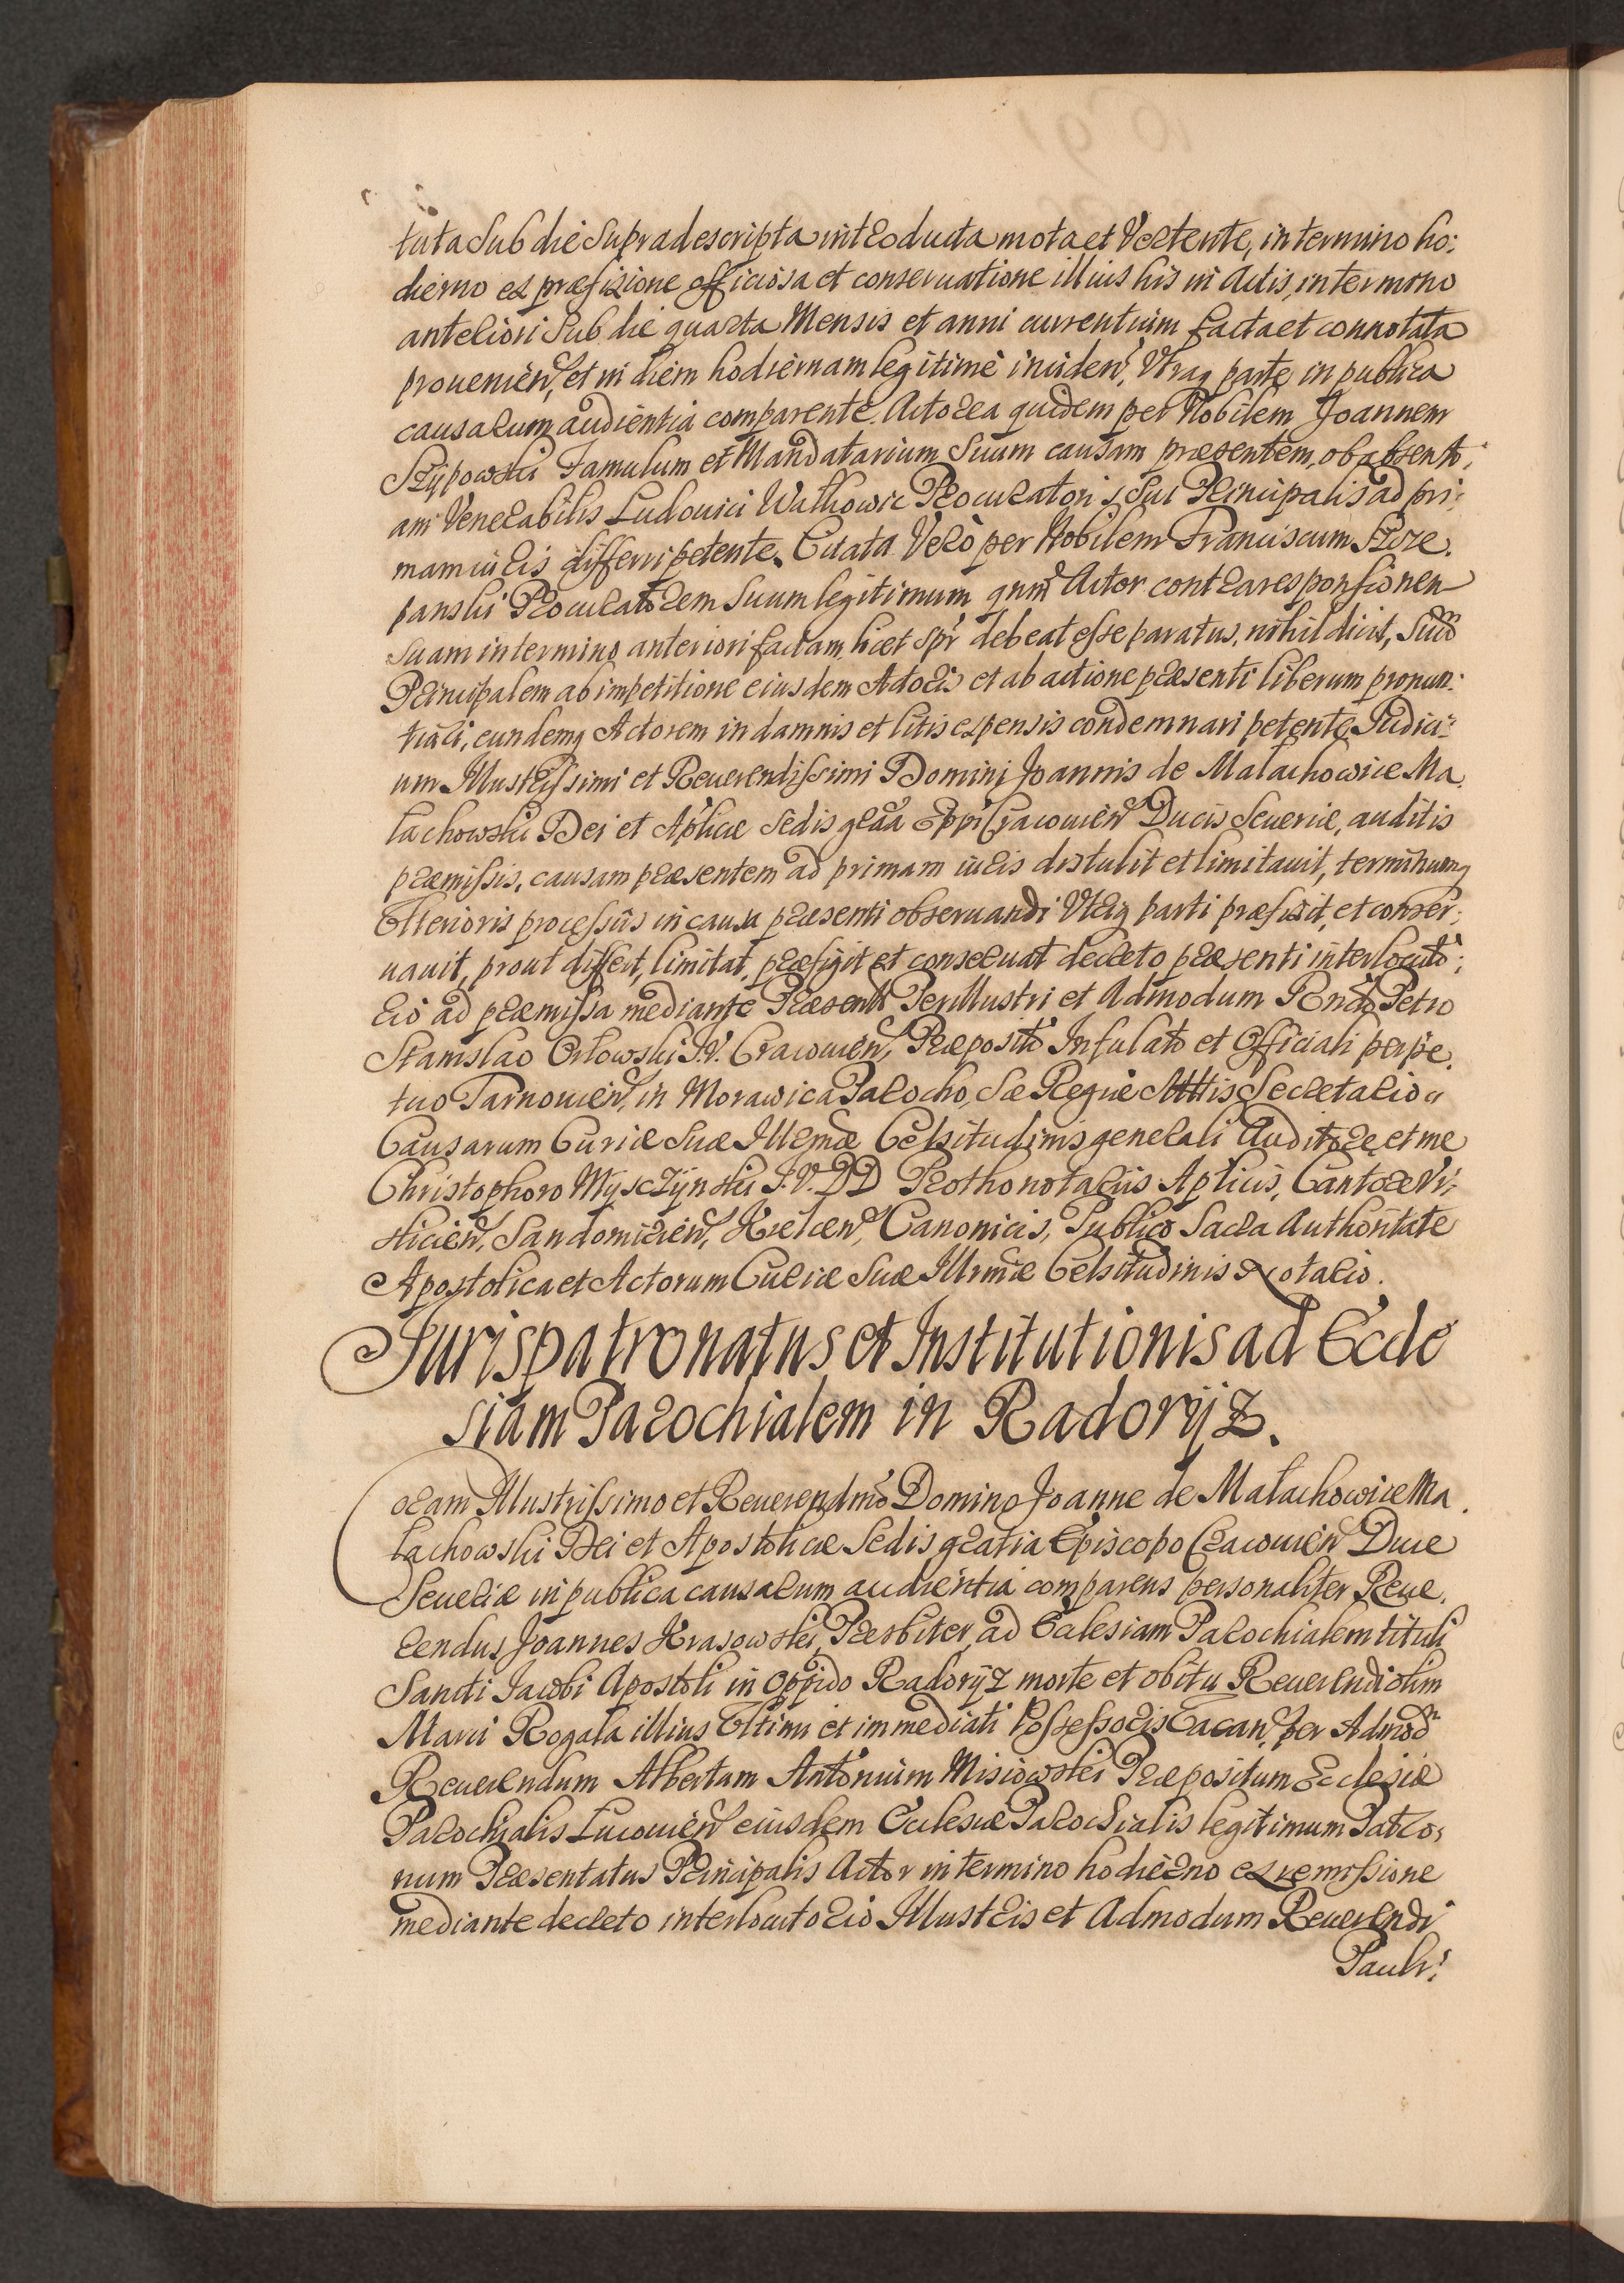 tuta Sub die Supradescripta introducta mota et Vertente, in termino ho:
dierno ex præfixione officiosa et conseruatione illius his in Actis, in termino
anteriori Sub die quarta Mensis et anni currentium facta et connotata
prouenien, et in diem hodiernam legitime inciden, Vtraq parte in publica
causarum audientia comparente. Actorea quidem per Nobilem Joannem
Szypowski Famulum et Mandatarium Suum causam præsentem, ob absenti:
am Venerabilis Ludouici Wathowic Procuratoris Sui Principalis ad pri:
mam iuris differri petente. Citata Verò per Nobilem Franciscum Szcze.
panski Procuratorem Suum legitimum qnm Actor contra responsionem
Suam in termino anteriori factam, licet spr debeat esse paratus, nihil dicit, Suum
Principalem ab impetitione eiusdem Actoris et ab actione præsenti liberum pronun:
tiari, eundemq Actorem in damnis et litis expensis condemnari petente. Judici:
um Illustrissimi et Reuerendissimi Domini Joannis de Małachowice Ma.
łachowski Dei et Aplicæ Sedis graa Eppi Cracouien Ducis Seueriæ, auditis
præmissis, causam præsentem ad primam iuris distulit et limitauit, terminumq
Vlterioris processus in causa præsenti obseruandi Vtriq parti præfixit, et conser:
uauit, prout differt, limitat, præfigit et conseruat decreto præsenti interlocuto:
rio ad præmissa mediante Præsenti Perillustri et Admodum Rndo Petro
Stanislao Orłowski I.V. Cracouien, Præposito Infulato et Officiali perpe.
tuo Tarnouien, in Morawica Parocho, Sæ Regiæ Mttis Secretario
Causarum Curiæ Suæ Illrmæ Celsitudinis generali Auditore, et me
Christophoro Myszczyński I.V. DD Prothonotariis Aplicis, Cantore Vi:
sliciën, Sandomirien, Kielcen, Canonicis, Publico Sacra Authoritate
Apostolica et Actorum Curiæ Suæ Illrmæ Celsitudinis Notario.
Jurispatronatus et Institutionis ad Eccle
siam Parochialem in Radoryż.
Coram Illustrissimo et Reuerendmo Domino Joanne de Małachowice Ma.
łachowski Dei et Apostolicæ Sedis gratia Episcopo Cracouien Duce
Seueriæ in publica causarum audientia comparens personaliter Reue.
rendus Joannes Krasowski, Præsbiter, ad Ecclesiam Parochialem tituli
Sancti Jacobi Apostoli in oppido Radoryż morte et obitu Reuerendi olim
Marci Rogala illius Vltimi et immediati Possessoris Vacan, per Admodm
Reuerendum Albertum Antonium Misiowski Præpositum Ecclesiæ
Parochialis Lucouien eiusdem Ecclesiæ Parochialis legitimum Patro:
num Præsentatus Principalis Actor in termino hodierno ex remissione
mediante decreto interlocutorio Illustris et Admodum Reuerendi
Pauli: